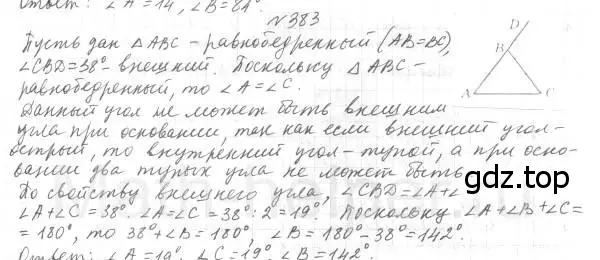 Ответ: ∠A = 14, ∠B = 84°.
№383
Пусть дан △ABC – равнобедренный (AB=BC),
∠CBD=38° – внешний. Поскольку △ABC –
равнобедренный, то ∠A=∠C.
Данный угол не может быть внешним
угла при основании, так как если внешний угол –
острый, то внутренний угол – тупой, а при осно-
вании два тупых угла не может быть
По свойству внешнего угла, ∠CBD=∠A+∠
∠A+∠C=38°. ∠A=∠C=38°:2=19°. Поскольку ∠A+∠B+∠C=
=180°, то 38°+∠B=180°, ∠B=180°-38°=142°.
Ответ: ∠A=19°, ∠C=19°, ∠B=142°.
D
B
A
C
reshak.ru